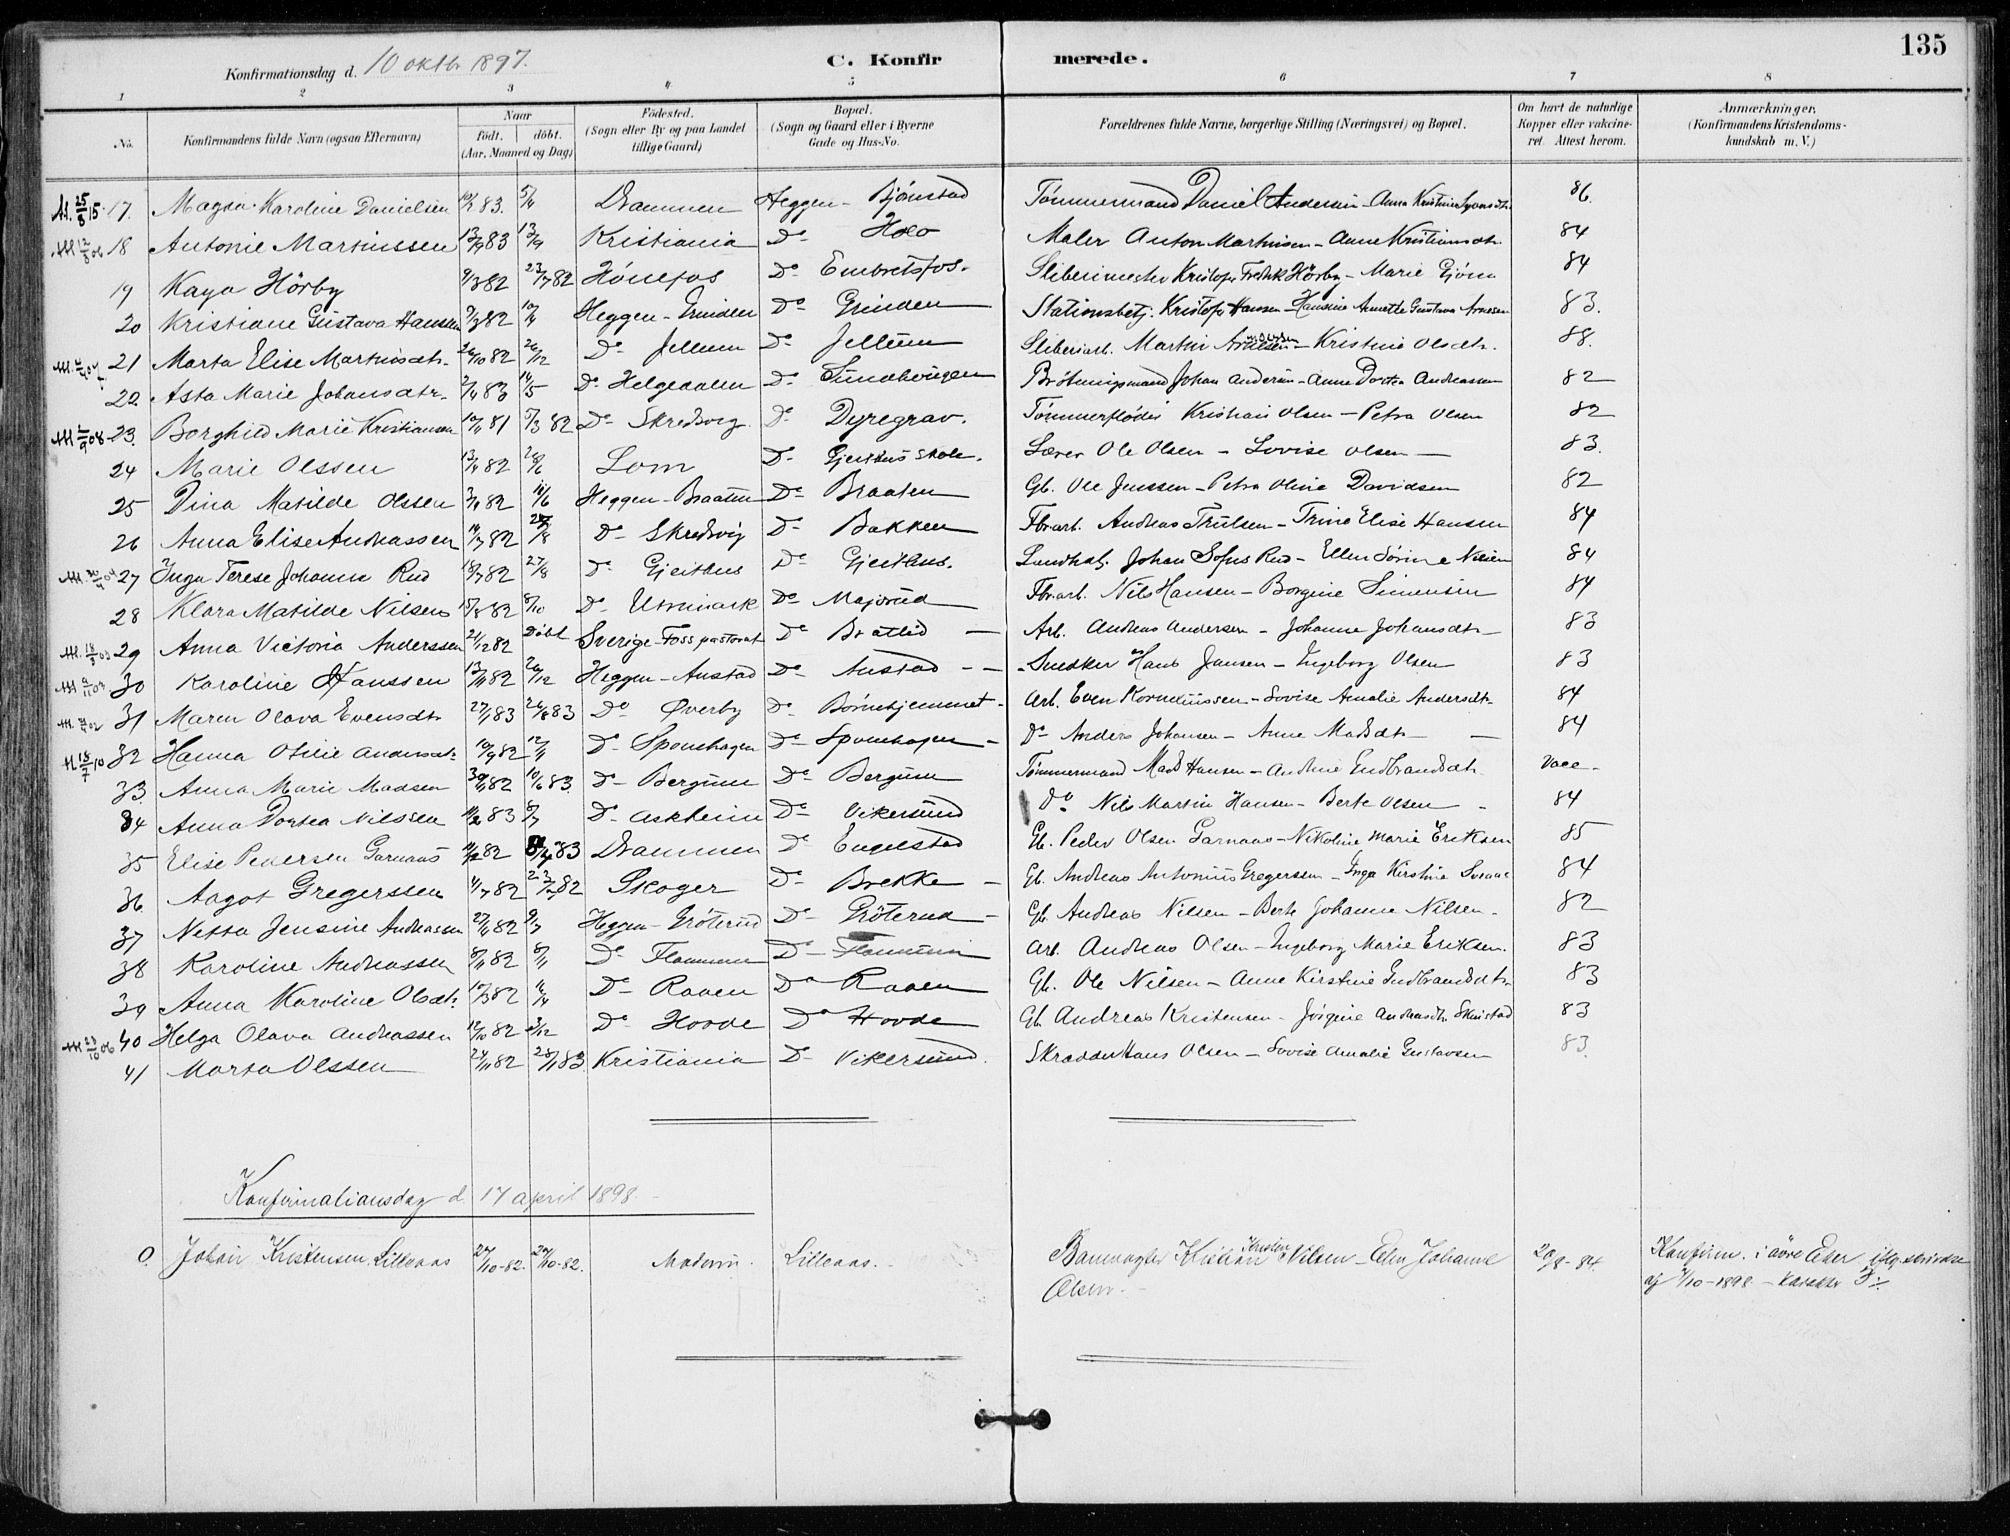 135
Konfirmationsdag d. 10 oktbr 1897. C. Konfirmerede.
1 2 3 4 5 6 7 8
No. Konfirmandens fulde Navn (ogsaa Efternavn) Naar födt. döbt. (Aar, Maaned og Dag) Födested. (Sogn eller By og paa Landet tillige Gaard) Bopæl. (Sogn og Gaard eller i Byerne Gade og Hus-No. Forældrenes fulde Navne, borgerlige Stilling (Næringsvei) og Bopæl. Om havt de naturlige Kopper eller vakcineret. Attest herom. Anmærkninger. (Konfirmandens Kristendomskundskab m. V.)
17. Magda Karoline Danielsen 83. Drammen Heggen - Bjönstad Tømmermand Daniel Andersen - Anna Kristine 86.
18 Antonie Martinssen 13/9 83 13/9 Kristiania Do Holo Maler Anton Martinsen - Anne Kristiansdtr. 84
19 Kaya Hörby 9/3 82 23/7 82 Hönefos Do Embretsfos. Sliberimester Kristofer Fredrik Hörby - Marie Gjörn 84
20 Kristiane Gustava Hanssen 82 Heggen - Grinden Do Grinden Stationsbetj. Kristofer Hansen - Hansine Annette Gustava 83.
21 Marta Elise Martinsdtr. 26/10 82 26/12 Do Jellum Do Jellum Sliberiarb. Martin - Kristine Olsdtr. 88.
22. Asta Marie Johansdtr. 83 Do Helgedalen Do Brötningsmand Johan Andersen - Anne Dortea Andreassen 82
23. Borghild Marie Kristiansen 81 5/3 82 Do Skredsvig Do Dyregrav. Tömmerflöder Kristian Olsen - Petra Olsen 82
24 Marie Olssen 13/4 82 Lom Do Gjeithus Skole. Lærer Ole Olsen - Lovise Olsen 83.
25 Dina Matilde Olssen 3/4 82 Heggen - Braaten Do Braaten Gb. Ole Jenssen - Petra Oline Davidsen 82
26 Anna Elise Andreassen 82 Do Skredsvig Do Bakken Fbr.arb. Andreas Trulsen - Trine Elise Hansen 84
27 Inga Terese Johanne Rud 18/7 82 27/8 Do Gjeithus Do Gjeithus. Landhdl. Johan Sofus Rud - Ellen Sörine Nilsen 84
28 Klara Matilde Nilsen 15/8 82 8/10 Do Do Majorud Fbr.arb. Nils Hansen - Borgine Simensen 84
29 Anna Victoria Anderssen 21/12 82 Döbt Sverige - Foss pastorat Do Brattlid Arb. Andreas Andersen - Johanne Johansdtr 83
30 Karoline Hanssen 82 26/12 Heggen - Austad Do Austad Snedker Hans Jansen - Ingeborg Olsen 83
31 Maren Olava Evensdtr 27/1 83 26/8 83 Do Øverby Do Börnehjemmet Arb. Even Korneliussen - Lovise Amalie Andersdtr. 84
32 Hanna Otilie Andersdtr 10/9 82 12/11 Do Sponehagen Do Sponehagen Do Anders Johansen - Anne Madsdtr 84
33 Anna Marie Madsen 82 10/6 83. Do Bergum Do Bergum Tömmermand Mads Hansen - Andrine Endbrandsdtr. Vacc.
34 Anna Dortea Nilssen 83 Do Askheim Do Vikersund Do Nils Martin Hansen - Berte Olsen 84
35 Elise Pedersen Garnaas 82 83 Drammen Do Engelstad Gb. Peder Olsen Garnaas - Nikoline Marie Eriksen 85
36 Aagot Gregerssen 4/7 82 82 Skoger Do Brekke Gb. Andreas Antonius Gregersen - Inga Kirstine 84
37 Netta Jensine Andreassen 82 Heggen - Gröterud Do Gröterud Gb. Andreas Nilsen - Berte Johanne Nilsen. 82
38 Karoline Andreassen 82 Do Flannum Do Flannum Arb. Andreas Olsen - Ingeborg Marie Eriksen. 83
39 Anna Karoline Olsdtr. 82 Do Raaen Do Raaen Gb. Ole Nilsen - Anne Kirstine Gudbrandsdtr 83
40 Helga Olava Andreassen 12/10 82 3/12 Do Hovde Do Hovde Gb. Andreas Kristensen - Jörgine Andreasdtr. 83
41 Marta Olssen 24/11 82 28/1 83 Kristiania Do Vikersund. Skrædder Hans Olsen - Lovise Amalie Gustavsen 83.
Konfirmationsdag d. 17 april 1898.
0. Johan Kristensen Lilleaas 24/10-82. 82. Modum. Lilleaas. Banevogter Kristian Kristen Nilsen - Elen Johanne 20/8-84. Konfirm. i övre Eker iflg. skrivelse
Olsen. af 7/10-1898 - karakter